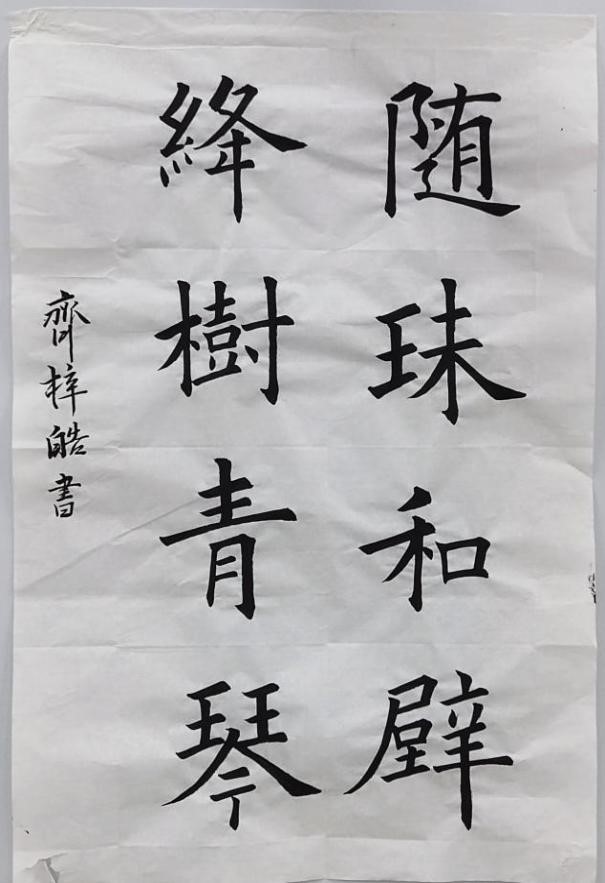 随珠和璧
絳樹青琴
齊梓皓書